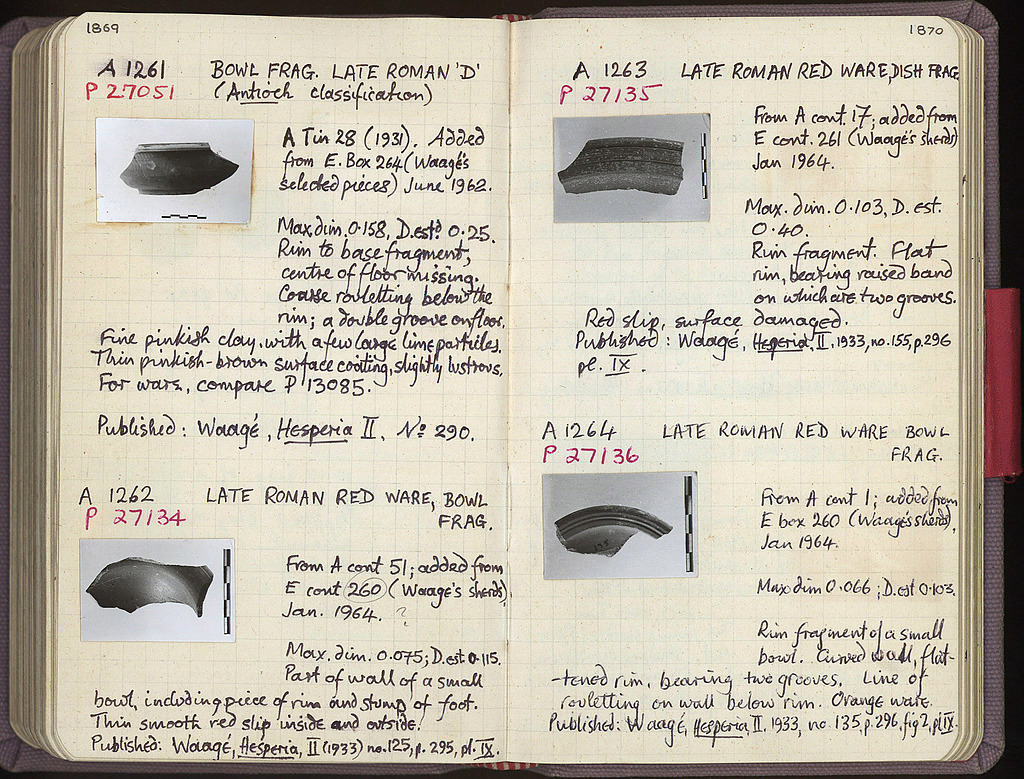 1869
A 1261 BOWL FRAG. LATE ROMAN 'D'
P 27051 (Antioch classification)
A Tin 28 (1931). Added
from E. Box 264 (Waagé's
selected pieces) June 1962.
Max. dim. 0.158, D. estd 0.25.
Rim to base fragment,
centre of floor missing.
Coarse rouletting below the
rim; a double groove on floor.
Fine pinkish clay, with a few large lime particles.
Thin pinkish-brown surface coating, slightly lustrous.
For ware, compare P 13085.
Published: Waagé, Hesperia II. No 290.
A 1262 LATE ROMAN RED WARE, BOWL
P 27134 FRAG.
From A cont 51; added from
E cont 260 (Waagé's sherds)
Jan. 1964. ?
Max. dim. 0.075; D. est 0.115.
Part of wall of a small
bowl, including piece of rim and stump of foot.
Thin smooth red slip inside and outside.
Published: Waagé, Hesperia, II (1933) no. 125, p. 295, pl. IX.
1870
A 1263 LATE ROMAN RED WARE, DISH FRAG
P 27135
From A cont. 17; added from
E cont. 261 (Waagé's sherds)
Jan 1964.
Max. dim. 0.103, D. est.
0.40.
Rim fragment. Flat
rim, bearing raised band
on which are two grooves.
Red slip, surface damaged.
Published: Waagé, Hesperia, II, 1933, no. 155, p. 296
pl. IX.
A 1264 LATE ROMAN RED WARE BOWL
P 27136 FRAG.
From A cont 1; added from
E box 260 (Waagé's sherds),
Jan 1964.
Max dim 0.066; D. est 0.103.
Rim fragment of a small
bowl. Curved wall, flat-
-tened rim, bearing two grooves. Line of
rouletting on wall below rim. Orange ware.
Published: Waagé, Hesperia II. 1933, no. 135, p. 296, fig 2, pl IX.